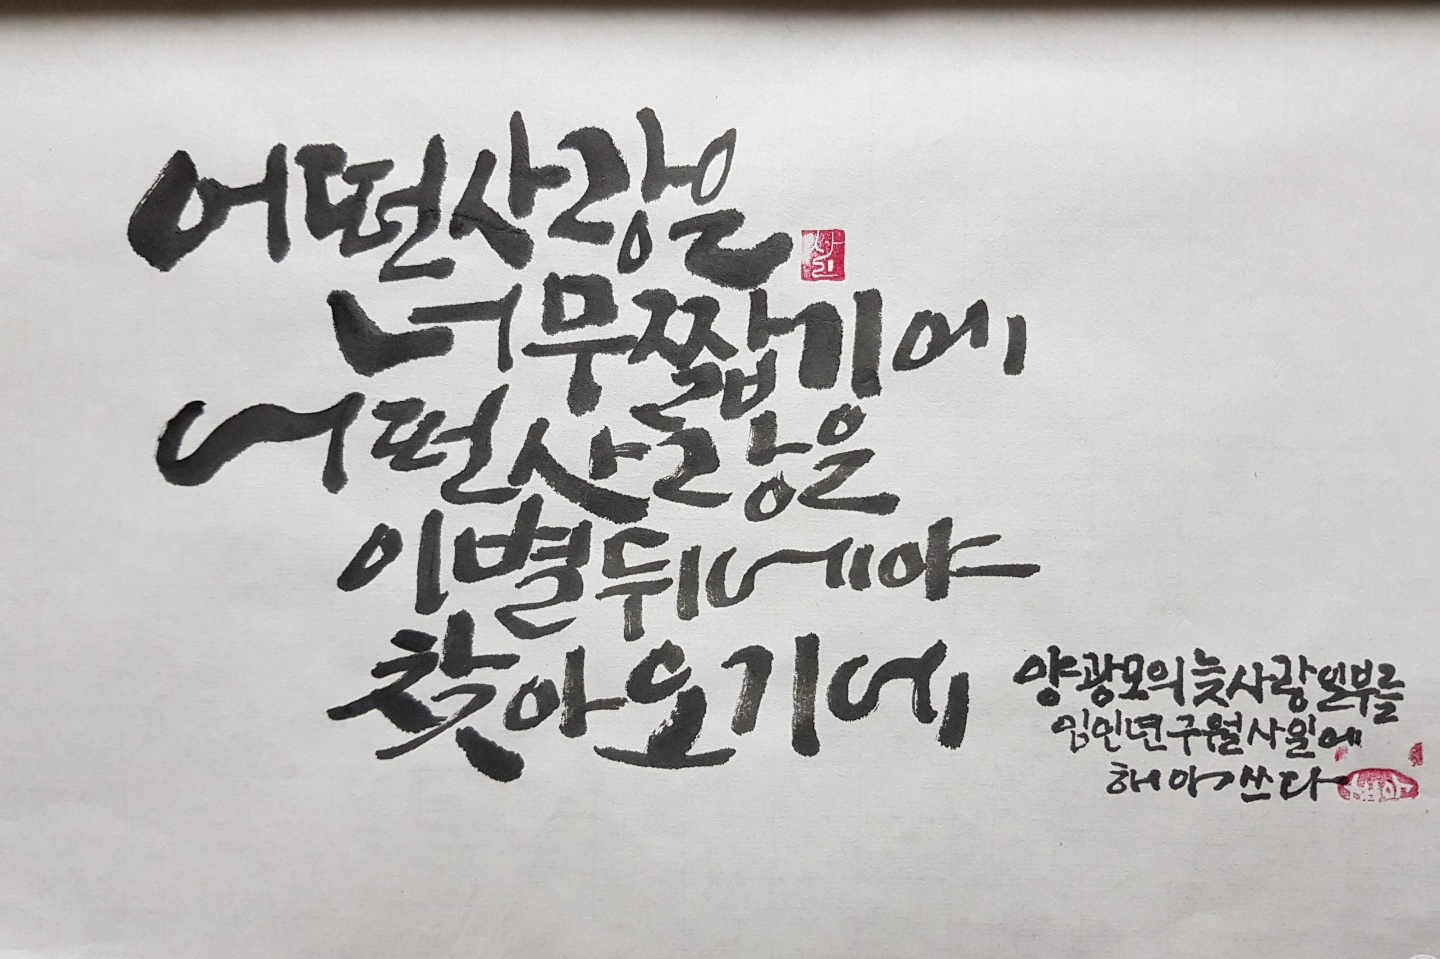 어떤 사랑은
너무 짧기에
어떤 사랑은
이별 뒤에야
찾아오기에
양광모의 늦사랑 일부를
임인년 구월 사일에
해아가 쓰다